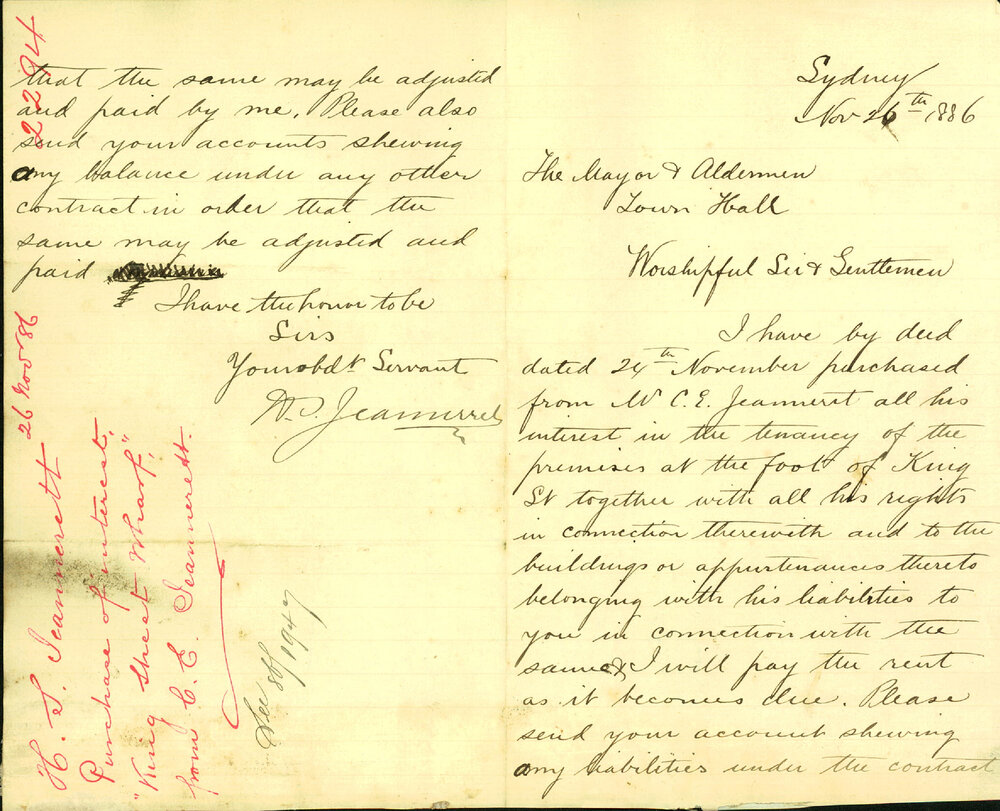 Sydney
Nov 26th 1886
The Mayor & Aldermen
Town Hall
Worshipful Sir & Gentlemen
I have by deed
dated 24th November purchased
from Mr C. E. Jeannerett all his
interest in the tenancy of the
premises at the foot of King
St together with all his rights
in connection therewith and to the
buildings or appurtenances thereto
belonging with his liabilities to
you in connection with the
same & I will pay the rent
as it becomes due. Please
send your account shewing
any liabilities under the contract
that the same may be adjusted
and paid by me. Please also
send your accounts shewing
any balance under any other
contract in order that the
same may be adjusted and
paid
I have the honor to be
Sirs
Your obdt Servant
H. S. Jeannerrett
2294
H. S. Jeannerett 26 Nov 86
Purchase of interest,
"King Street Wharf,"
from C. E. Jeannerett.
See 86/1947